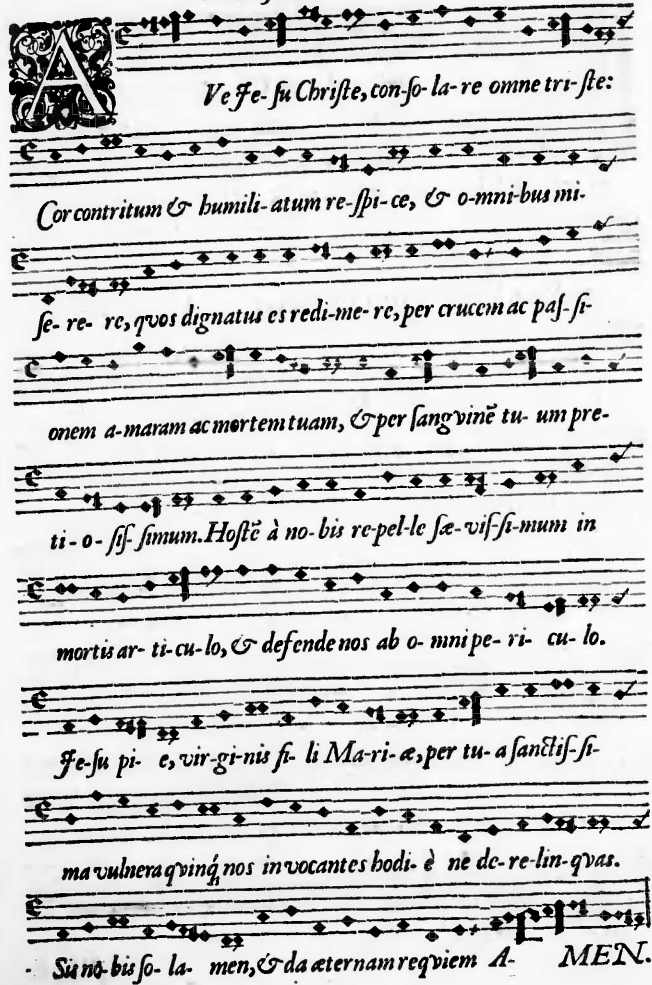 AVe Jeſu Chriſte, con-ſo-la-re omne tri-ſte:
Cor contritum & humili-atum re-ſpi-ce, & o-mni-bus mi-
ſe-re-re, qvos dignatus es redi-me-re, per crucem ac paſ-ſi-
onem a-maram ac mortem tuam, & per ſangvinē tu-um pre-
ti-o-ſiſ-ſimum. Hoſtē à no-bis re-pel-le ſæ-viſ-ſi-mum in
mortis ar-ti-cu-lo, & defende nos ab o-mni pe-ri-cu-lo.
Je-ſu pi-e, vir-gi-nis fi-li Ma-ri-æ, per tu-a ſanctiſ-ſi-
ma vulnera qvinq́; nos invocantes hodi-è ne de-re-lin-qvas.
Sis no-bis ſo-la-men, & da æternam reqviem A-MEN.